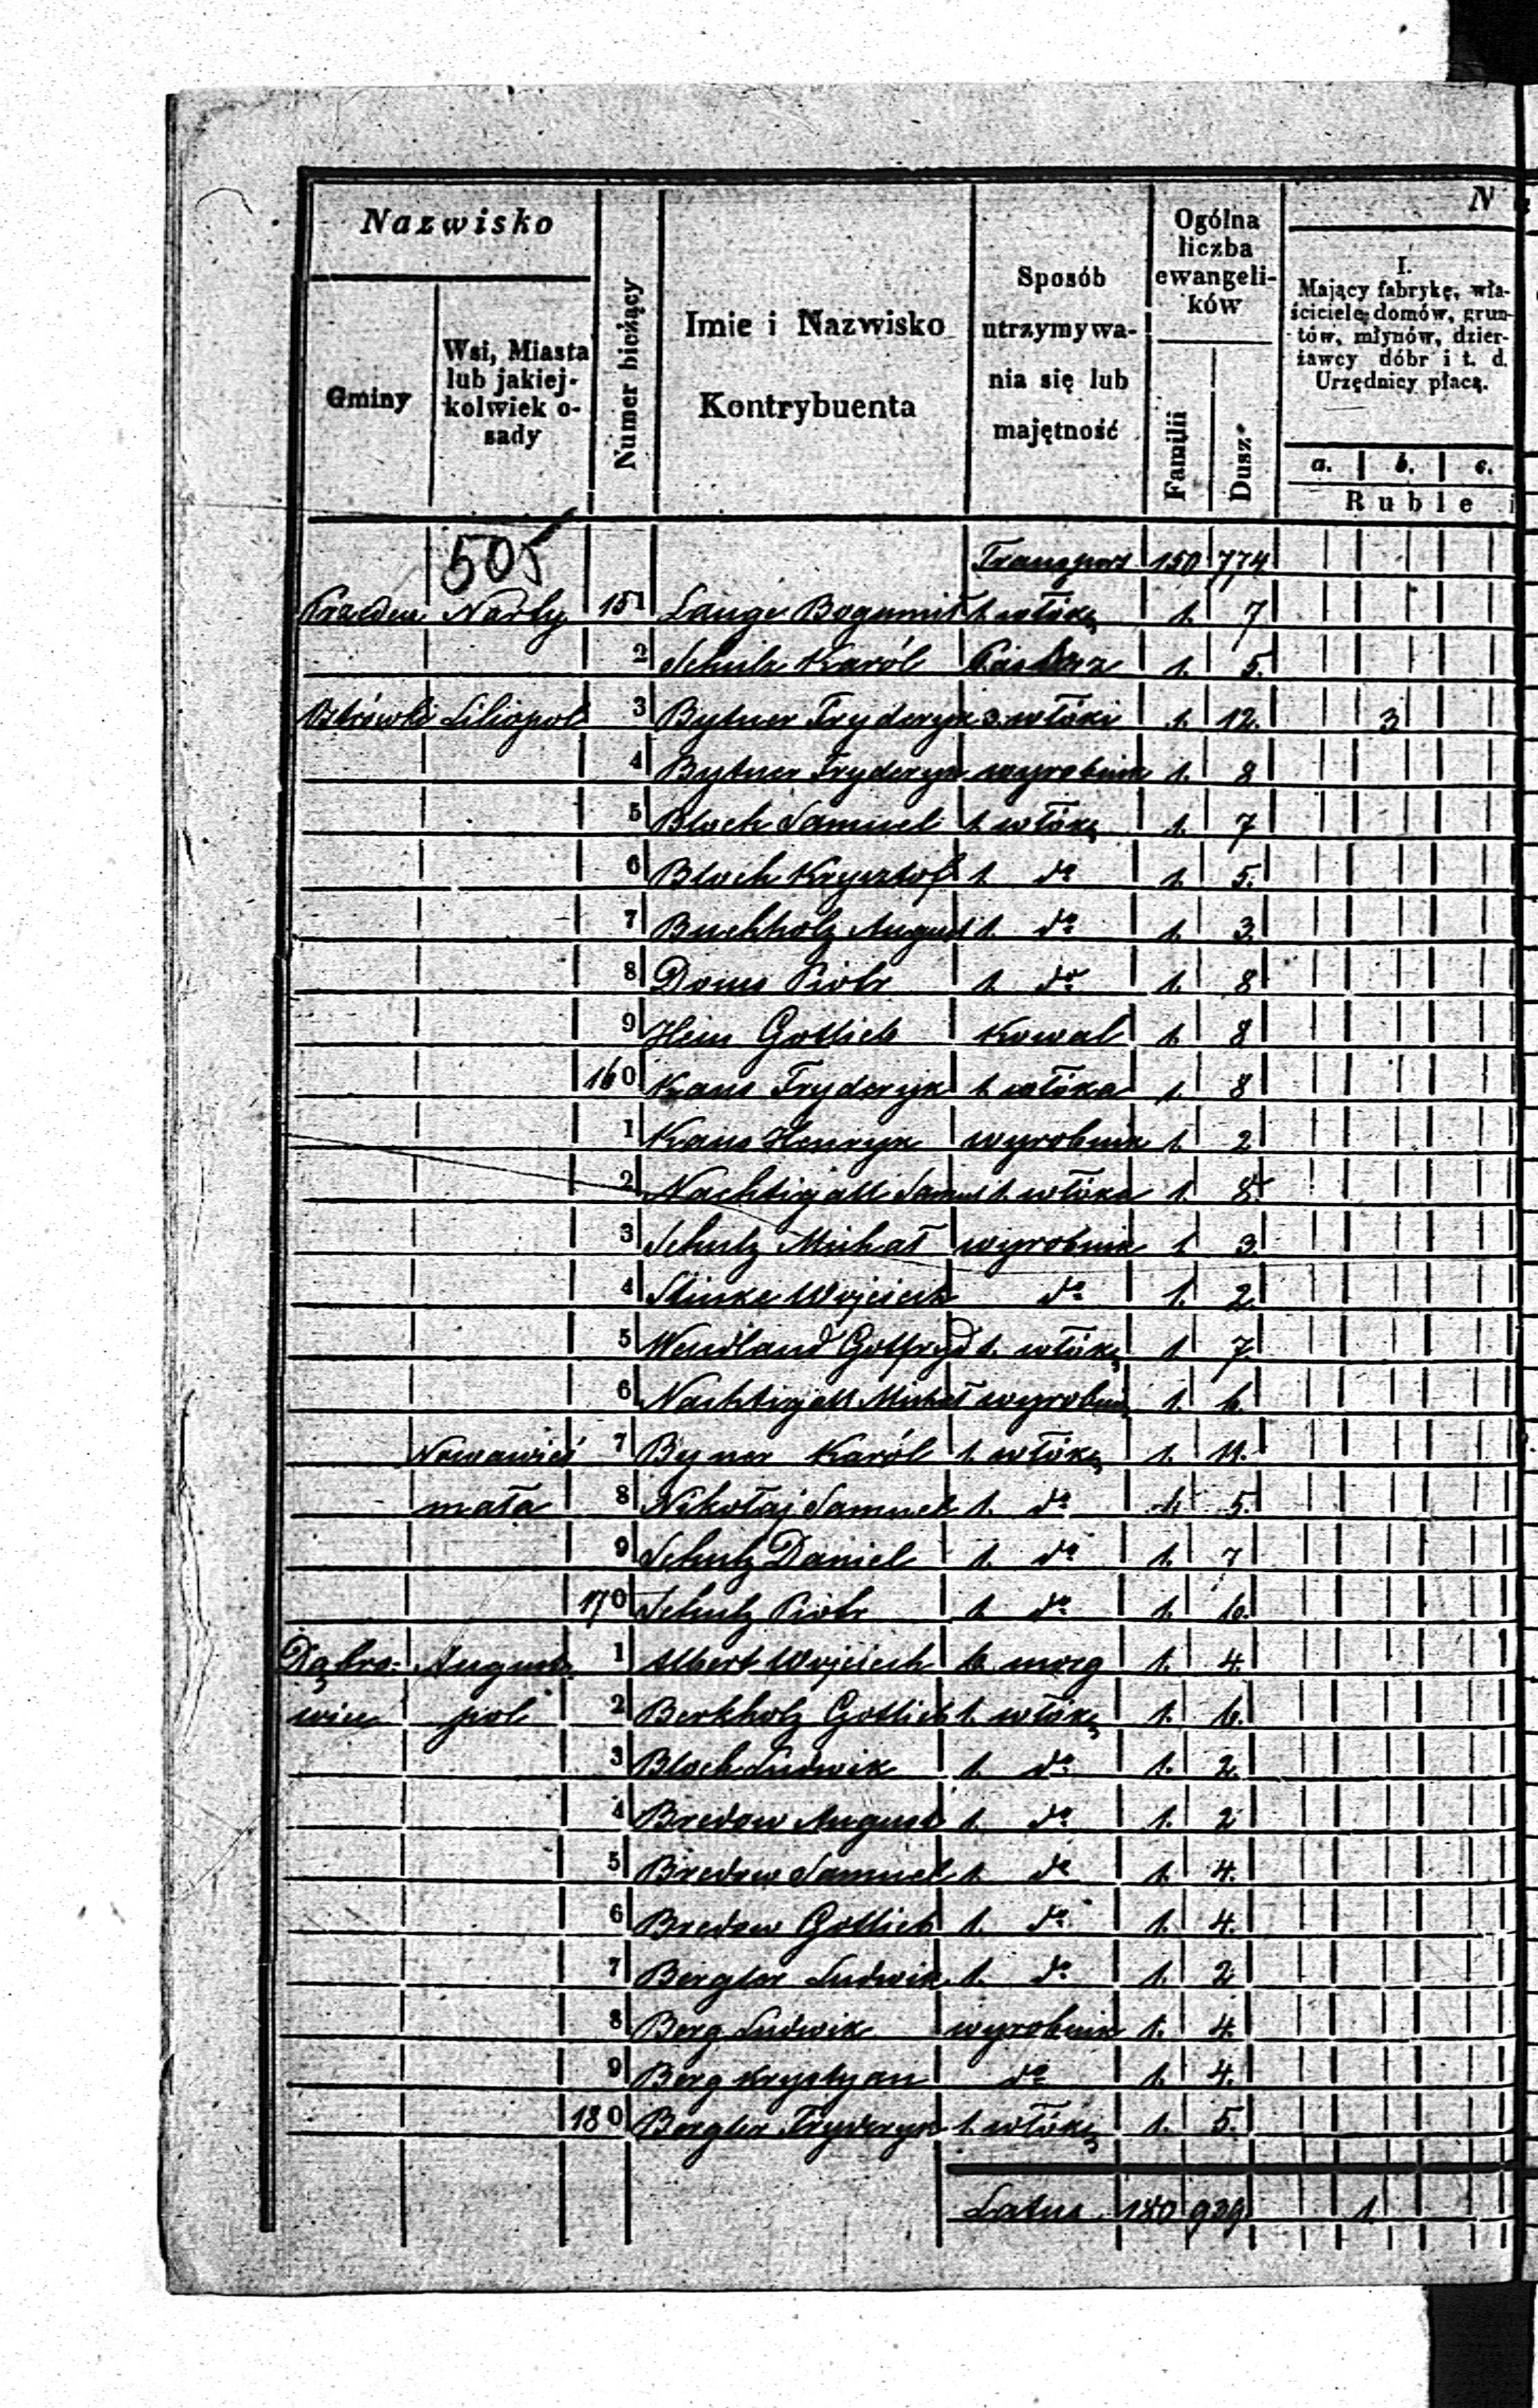 Nazwisko
Gminy
Wsi, Miasta
lub jakiej-
kolwiek o-
sady
Numer bieżący
Imie i Nazwisko
Kontrybuenta
Sposób
utrzymywa-
nia się lub
majętność
Ogólna
liczba
ewangeli-
ków
Familii
Dusz
N
I.
Mający fabrykę, wła-
ściciele domów, grun-
tów, młynów, dzier-
żawcy dóbr i t. d.
Urzędnicy płacą.
a. b. c.
Ruble
505
Transport 150 774
Narty 151 Lange Bogumił 1. włókę 1. 7
2 Schulz Karól 1. 5.
Liliopol 3 Bytner Fryderyk 3. włóki 1. 12. 3
4 Bytner Fryderyk wyrobnik 1. 8
5 Bloch Samuel 1. włókę 1. 7
6 Bloch Krysztof 1. do 1. 5.
7 Buchholz August 1. do 1. 3
8 Doms Piotr 1. do 1. 8
9 Hein Gottlieb Kowal 1. 8
160 Kraus Fryderyk 1. włóka 1. 8
1 Kraus Henryk wyrobnik 1. 2
2 Nachtigall Samuel 1. włóka 1. 8.
3 Schulz Michał wyrobnik 1 3
4 Stinke Wojciech do 1. 2.
5 Wendland Gotfryd 1. włókę 1 7.
6 Nachtigall Michał wyrobnik 1. 6.
Nowawieś 7 Byner Karól 1. włókę 1. 11.
mała 8 Nikołaj Samuel 1. do 1. 5.
9 Schulz Daniel 1. do 1. 7
170 Schulz Piotr 1. do 1. 6.
Dąbro- August 1 Albert Wojciech 6. morg 1. 4.
wice pol 2 Berkholz Gottlieb 1. włókę 1. 6.
3 Bloch Ludwik 1. do 1. 2.
4 Bredow August 1. do 1. 2
5 Bredow Samuel 1. do 1. 4.
6 Bredow Gottlieb 1. do 1. 4.
7 Bergler Ludwik 1. do 1. 2
8 Berg Ludwik wyrobnik 1. 4.
9 Berg Krystyan do 1. 4.
180 Bergler Fryderyk 1. włókę 1. 5.
Latus 180 939 1